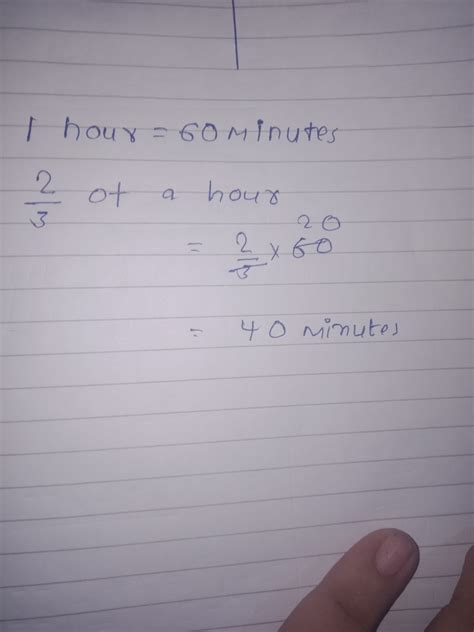 1 hour = 60 minutes
2/3 of a hour
20
= 2/3 × 60
= 40 minutes